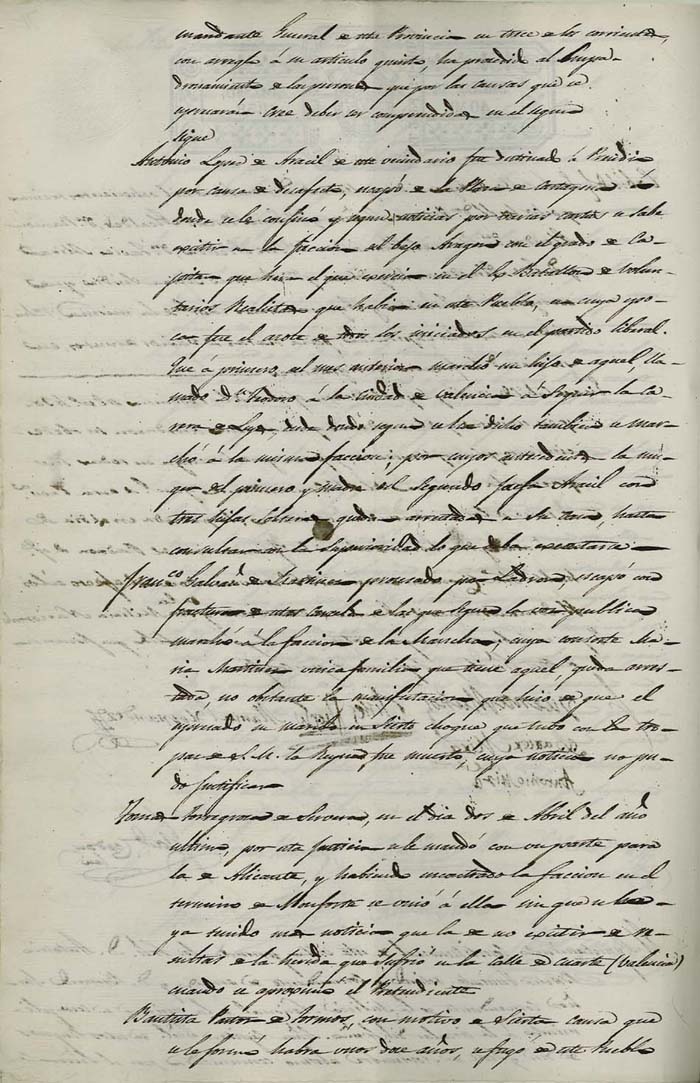 mandante General de esta Provincia en trece de los corrientes,
con arreglo á su articulo quinto, ha procedido al Empa-
dronamiento de las personas que por las causas que se
espresarán cree deber ser comprendidas en el segun
sigue
Antonio de Aracil de este vecindario fue destinado á Presidio
por causa de desafecto, escapó de la Plaza de Cartagena á
donde se le confinó y segun noticias por varias cartas se sabe
existir en la faccion del bajo Aragon con el grado de Ca-
pitan que hera el que exercia en el Batallon de Volun-
tarios Realistas que habia en este Pueblo, en cuya epo-
ca fue el azote de todos los iniciados en el partido liberal.
Que á primeros del mes anterior marchó un hijo de aquel, lla-
mado Dn. Teodoro á la Ciudad de Valencia á Seguir la Ca-
rrera de Leyes, desde donde segun ha dicho familia se mar-
chó á la misma faccion; por cuyos antecedentes la mu-
ger del primero y madre del Segundo Josefa Aracil con
tres hijas Solteras quedan arrestadas en Su Casa, hasta
consultar con la Superioridad lo que deba executarse
Franco. Galvañ de procesado por Ladron, escapó con
fractura de estas Carceles de las que segun la voz publica
marchó á la faccion de la Mancha; cuya consorte Ma-
ria Martinez unica familia que tiene aquel, queda arres-
tada, no obstante la manifestacion que hizo de que el
espresado su marido en Sierto choque que tubo con las tro-
pas de S. M. la Reyna, fue muerto, cuya noticia no pu-
do Justificar
Tomas de Servera, en el dia dos de Abril del año
ultimo, por esta Justicia se le mandó con un parte para
la de Alicante, y habiendo encontrado la faccion en el
termino de Monforte se unió á ella sin que se ha-
ya tenido mas noticia que la de no existir de re-
sultas de la herida que Sufrió en la calle de Cuarte (Valencia)
cuando se aproximó el Pretendiente
Bautista Pastor de Tormos, con motivo de Sierta causa que
se le formó habra unos dos años, se fugó de este Pueblo